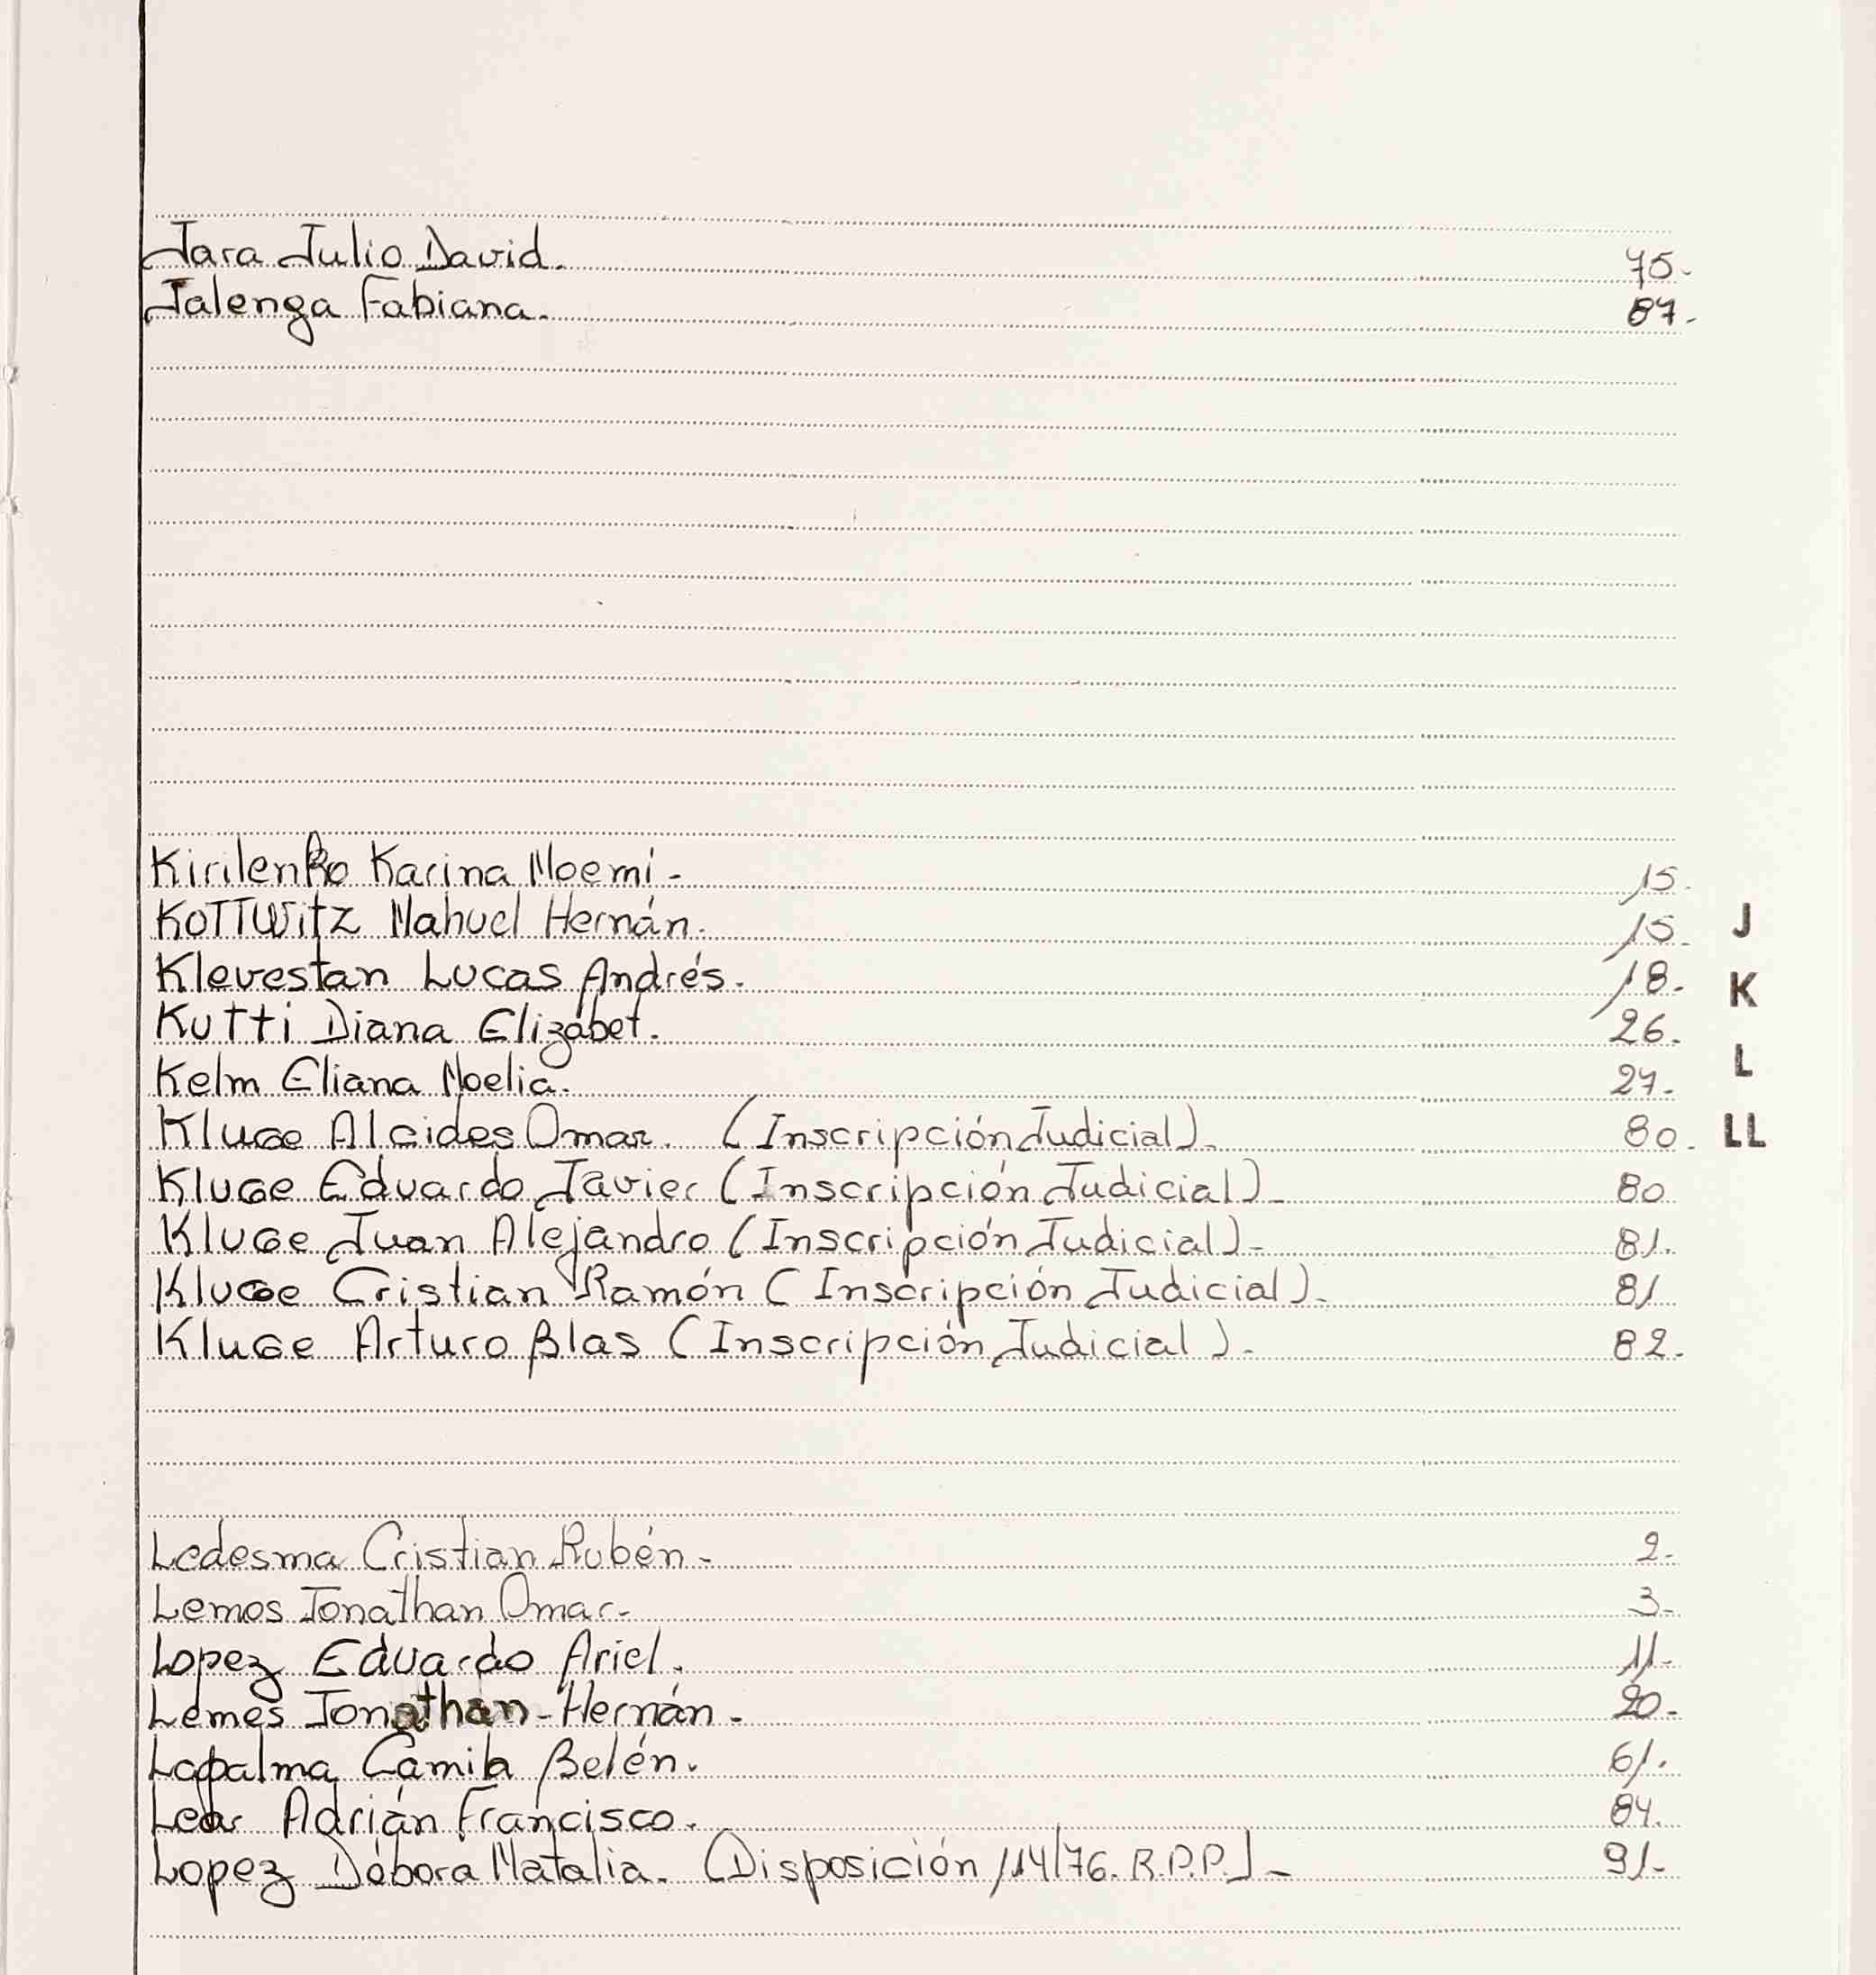 Jara Julio David. 75.
Jalenga Fabiana. 87.
Kirilenko Karina Noemí. 15.
Kottwitz Nahuel Hernán. 15.
J
Klevestan Lucas Andrés. 18.
K
Kutti Diana Elizabet. 26.
Kelm Eliana Noelia. 27.
L
Kluge Alcides Omar. (Inscripción Judicial). 80.
LL
Kluge Eduardo Javier (Inscripción Judicial). 80
Kluge Juan Alejandro (Inscripción Judicial). 81.
Kluge Cristian Ramón (Inscripción Judicial). 81
Kluge Arturo Blas (Inscripción Judicial). 82.
Ledesma Cristian Rubén. 2.
Lemos Jonathan Omar. 3.
Lopez Eduardo Ariel. 11.
Lemes Jonathan Hernán. 20.
Lapalma Camila Belén. 61.
Lear Adrián Francisco. 84.
Lopez Débora Natalia. (Disposición 114/76. R.P.P.). 91.